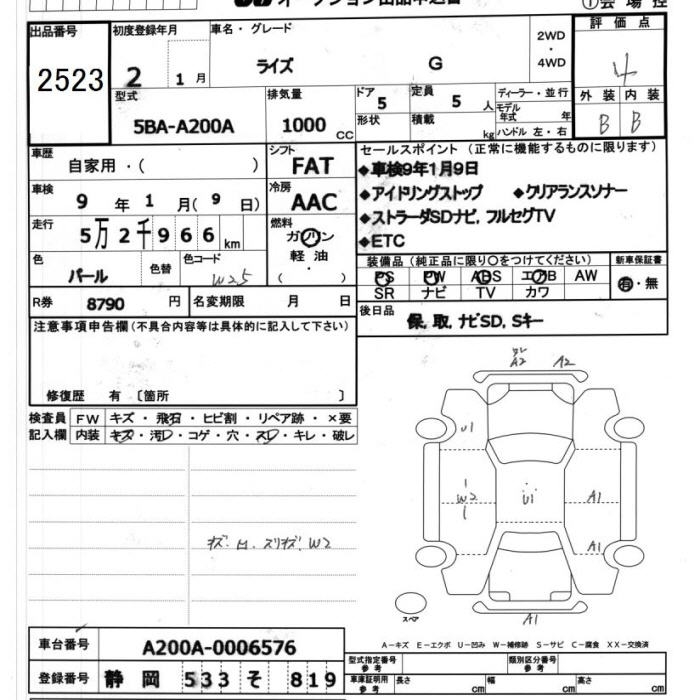 オークション出品申込書 ①会場控
出品番号 初度登録年月 車名・グレード 2WD・4WD 評価点
2523 2 1月 ライズ G 4
型式 排気量 ドア 定員 ディーラー・並行 外装 内装
5BA-A200A 1000 CC 5 5 人 モデル年式 年 B B
形状 積載 kg ハンドル 左・右
車歴 自家用・( ) シフト FAT セールスポイント (正常に機能するものに限ります)
◆車検9年1月9日
車検 9年 1月(9日) 冷房 AAC ◆アイドリングストップ ◆クリアランスソナー
◆ストラーダSDナビ,フルセグTV
走行 5万2千966km 燃料 ガソリン 軽油・( ) ◆ETC
色 パール 色替 色コード W25 装備品 (純正品に限り○をつけてください) 新車保証書
PS PW ABS エアB AW 有・無
SR ナビ TV カワ
R券 8790 円 名変期限 月 日 後日品
保,取,ナビSD,Sキー
注意事項申告欄(不具合内容等は具体的に記入して下さい)
修復歴 有 〔箇所 〕
検査員 FW キズ・飛石・ヒビ割・リペア跡・×要
記入欄 内装 キズ・汚レ・コゲ・穴・スレ・キレ・破レ
A2 A2
U1
W2 U1 A1
A1
キズ. W2
スペア A1
A-キズ E-エクボ U-凹み W-補修跡 S-サビ C-腐食 XX-交換済
車台番号 A200A-0006576 型式指定番号 参考 類別区分番号 参考
登録番号 静岡 533 そ 819 車庫証明用 参考 長さ cm 幅 cm 高さ cm